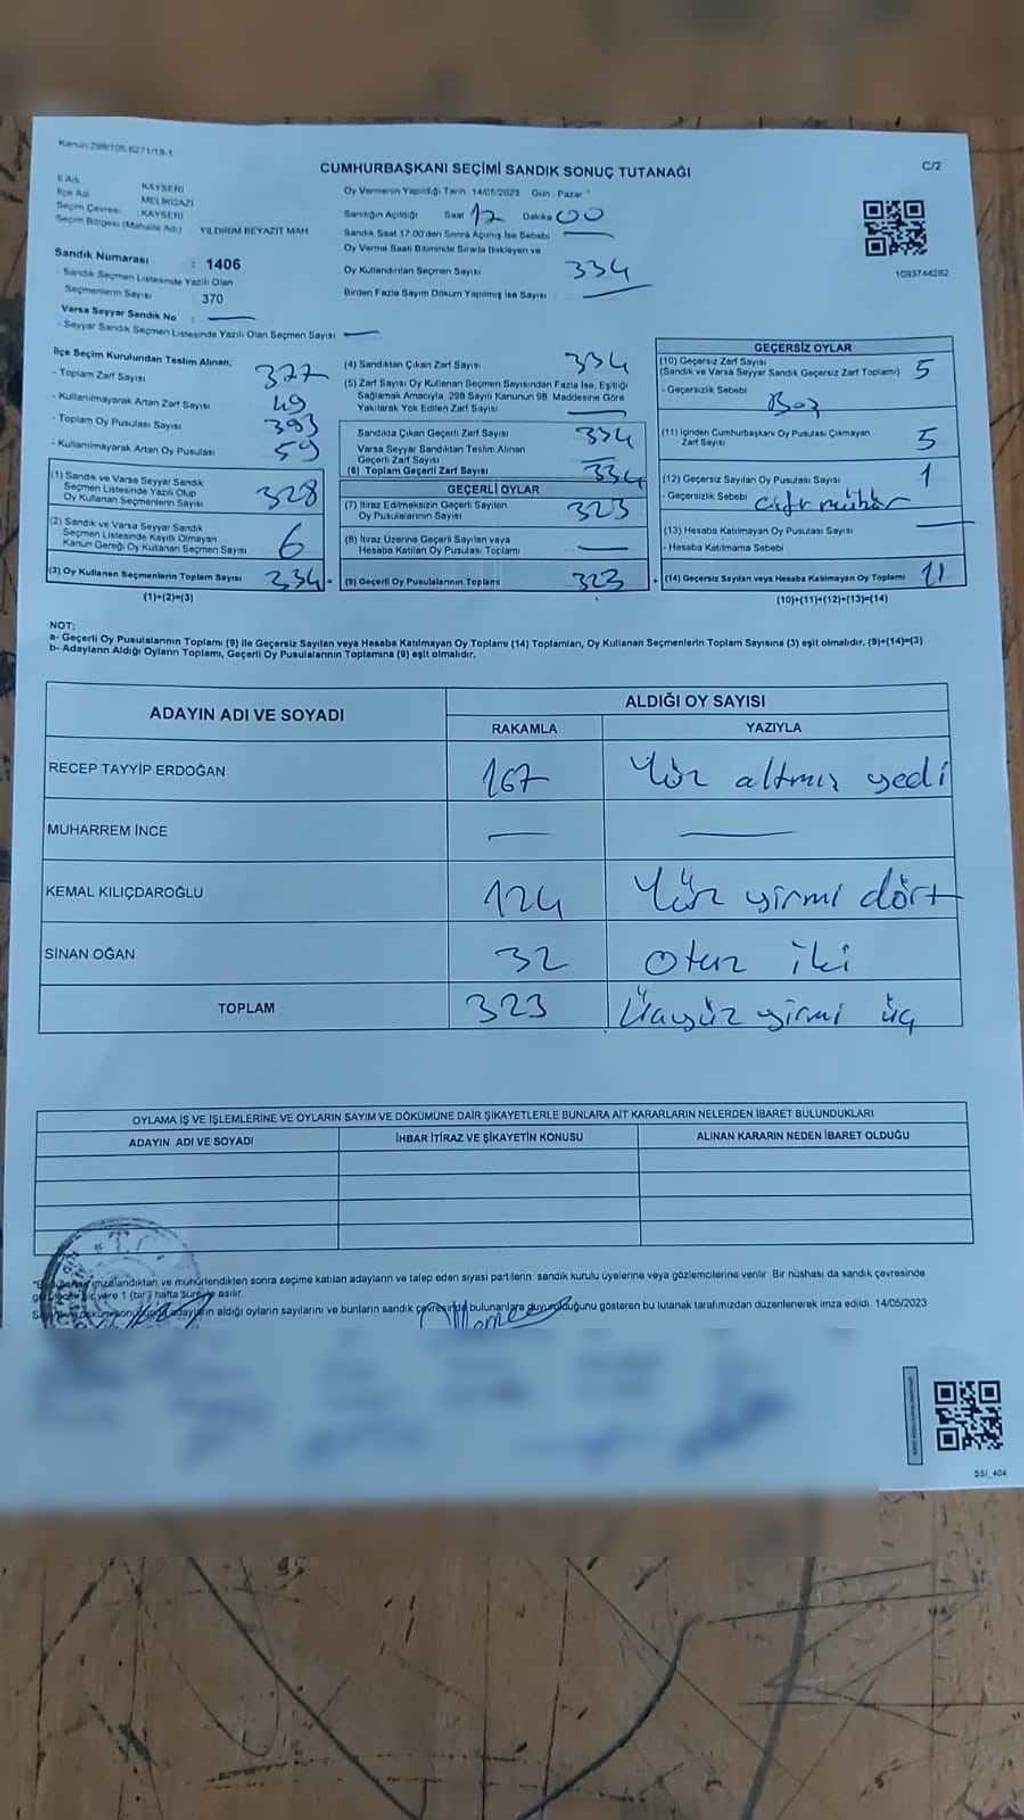 Kanun:298/105.6271/18-1
CUMHURBAŞKANI SEÇİMİ SANDIK SONUÇ TUTANAĞI
C/2
İl Adı KAYSERİ
İlçe Adı MELİKGAZİ
Seçim Çevresi :KAYSERİ
Seçim Bölgesi (Mahalle Adı) YILDIRIM BEYAZIT MAH
Sandık Numarası : 1406
- Sandık Seçmen Listesinde Yazılı Olan
Seçmenlerin Sayısı 370
Varsa Seyyar Sandık No :
- Seyyar Sandık Seçmen Listesinde Yazılı Olan Seçmen Sayısı
Oy Vermenin Yapıldığı Tarih 14/05/2023 Gün Pazar
Sandığın Açıldığı Saat 17 Dakika 00
Sandık Saat 17:00'den Sonra Açılmış İse Sebebi
Oy Verme Saati Bitiminde Sırada Bekleyen ve
Oy Kullandırılan Seçmen Sayısı 334
Birden Fazla Sayım Döküm Yapılmış İse Sayısı
1093744282
İlçe Seçim Kurulundan Teslim Alınan;
- Toplam Zarf Sayısı 377
- Kullanılmayarak Artan Zarf Sayısı 49
- Toplam Oy Pusulası Sayısı 393
- Kullanılmayarak Artan Oy Pusulası 59
(1) Sandık ve Varsa Seyyar Sandık
Seçmen Listesinde Yazılı Olup
Oy Kullanan Seçmenlerin Sayısı 328
(2) Sandık ve Varsa Seyyar Sandık
Seçmen Listesinde Kayıtlı Olmayan
Kanun Gereği Oy Kullanan Seçmen Sayısı 6
(3) Oy Kullanan Seçmenlerin Toplam Sayısı 334
(1)+(2)=(3)
(4) Sandıktan Çıkan Zarf Sayısı 334
(5) Zarf Sayısı Oy Kullanan Seçmen Sayısından Fazla İse, Eşitliği
Sağlamak Amacıyla, 298 Sayılı Kanunun 98. Maddesine Göre
Yakılarak Yok Edilen Zarf Sayısı
Sandıkta Çıkan Geçerli Zarf Sayısı 334
Varsa Seyyar Sandıktan Teslim Alınan
Geçerli Zarf Sayısı
(6) Toplam Geçerli Zarf Sayısı 334
GEÇERLİ OYLAR
(7) İtiraz Edilmeksizin Geçerli Sayılan
Oy Pusulalarının Sayısı 323
(8) İtiraz Üzerine Geçerli Sayılan veya
Hesaba Katılan Oy Pusulası Toplamı
(9) Geçerli Oy Pusulalarının Toplamı 323
GEÇERSİZ OYLAR
(10) Geçersiz Zarf Sayısı
(Sandık ve Varsa Seyyar Sandık Geçersiz Zarf Toplamı) 5
- Geçersizlik Sebebi
Boş
(11) İçinden Cumhurbaşkanı Oy Pusulası Çıkmayan
Zarf Sayısı 5
(12) Geçersiz Sayılan Oy Pusulası Sayısı 1
- Geçersizlik Sebebi Çift mühür
(13) Hesaba Katılmayan Oy Pusulası Sayısı
- Hesaba Katılmama Sebebi
(14) Geçersiz Sayılan veya Hesaba Katılmayan Oy Toplamı 11
(10)+(11)+(12)+(13)=(14)
NOT:
a- Geçerli Oy Pusulalarının Toplamı (9) ile Geçersiz Sayılan veya Hesaba Katılmayan Oy Toplamı (14) Toplamları, Oy Kullanan Seçmenlerin Toplam Sayısına (3) eşit olmalıdır. (9)+(14)=(3)
b- Adayların Aldığı Oyların Toplamı, Geçerli Oy Pusulalarının Toplamına (9) eşit olmalıdır.
ADAYIN ADI VE SOYADI
ALDIĞI OY SAYISI
RAKAMLA YAZIYLA
RECEP TAYYİP ERDOĞAN 167 Yüz altmış yedi
MUHARREM İNCE
KEMAL KILIÇDAROĞLU 124 Yüz yirmi dört
SİNAN OĞAN 32 Otuz iki
TOPLAM 323 Üçyüz yirmi üç
OYLAMA İŞ VE İŞLEMLERİNE VE OYLARIN SAYIM VE DÖKÜMÜNE DAİR ŞİKAYETLERLE BUNLARA AİT KARARLARIN NELERDEN İBARET BULUNDUKLARI
ADAYIN ADI VE SOYADI İHBAR İTİRAZ VE ŞİKAYETİN KONUSU ALINAN KARARIN NEDEN İBARET OLDUĞU
imzalandıktan ve mühürlendikten sonra seçime katılan adayların ve talep eden siyasi partilerin sandık kurulu üyelerine veya gözlemcilerine verilir. Bir nüshası da sandık çevresinde
1 (bir) hafta süreyle asılır.
adayların aldığı oyların sayılarını ve bunların sandık çevresinde bulunanlara duyurulduğunu gösteren bu tutanak tarafımızdan düzenlenerek imza edildi. 14/05/2023
SSI_404